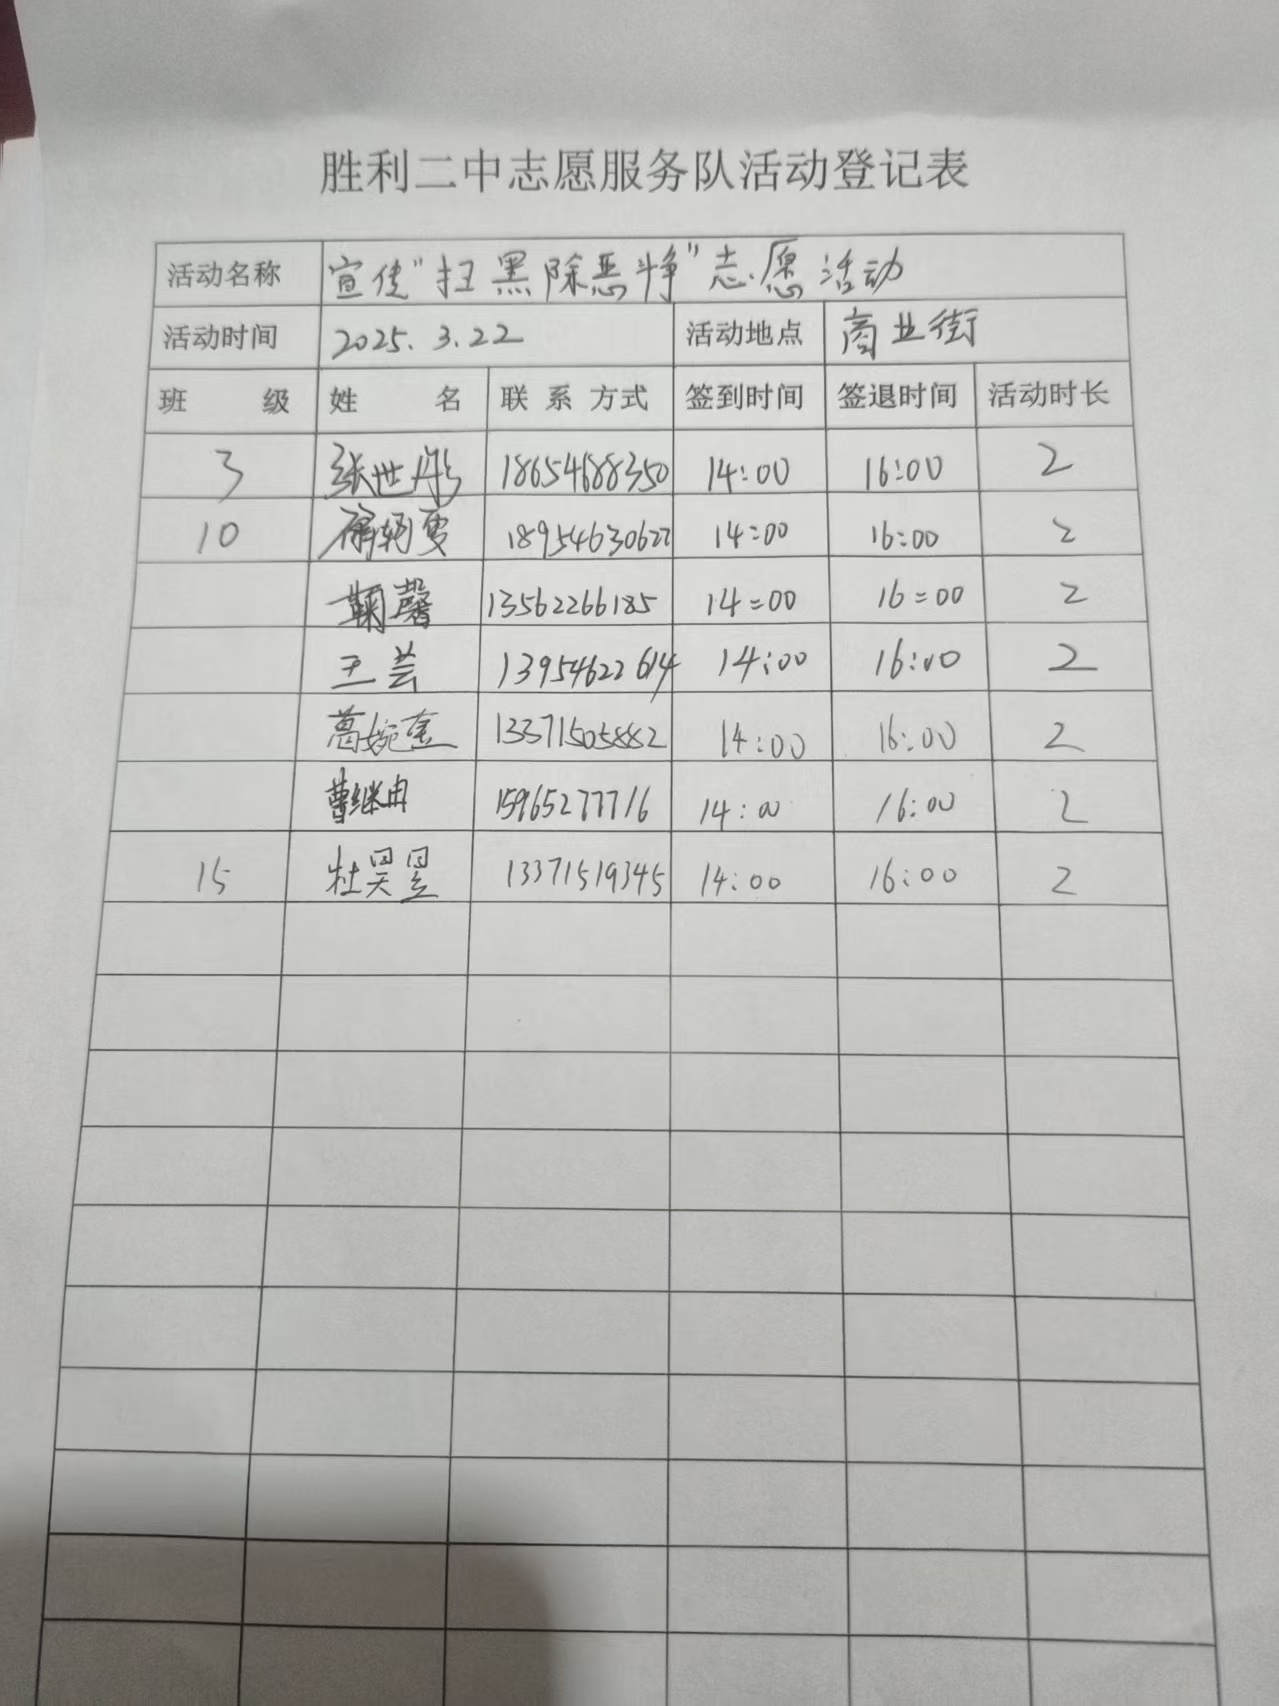 胜利二中志愿服务队活动登记表
活动名称 宣传"扫黑除恶斗争"志愿活动
活动时间 2025.3.22 活动地点 商业街
班 级 姓 名 联系方式 签到时间 签退时间 活动时长
3 张世彤 18654688350 14:00 16:00 2
10 18954630627 14:00 16:00 2
鞠馨 13562266185 14:00 16:00 2
王芸 13954622614 14:00 16:00 2
葛婉 13371505882 14:00 16:00 2
曹继冉 15965277716 14:00 16:00 2
15 杜昊昱 13371519345 14:00 16:00 2